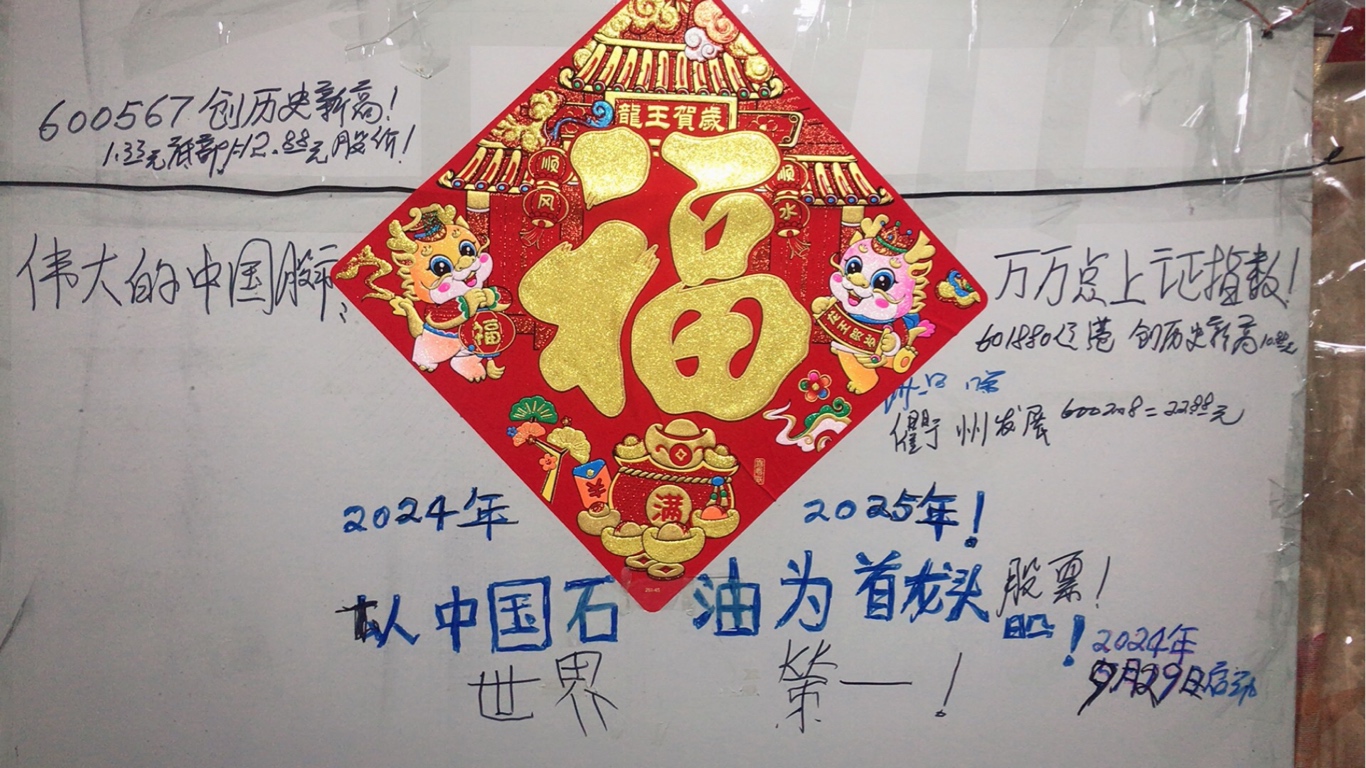 600567创历史新高!
1.33元底部片12.88元股价!
龍王賀歲
顺风
顺水
福
伟大的中国股市
万万点上证指数!
福
601880辽港 创历史新高10.88元
衢州发展 600208=22.88元
满
2024年 2025年!
以中国石油为首龙头股票!
股!
世界第一!
2024年
9月29日启动